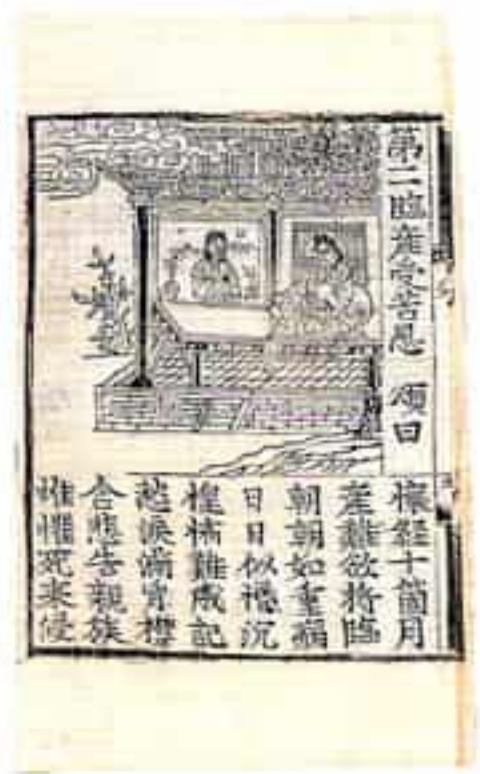 第二臨産受苦恩 頌曰
懷經十箇月
産難欲將臨
朝朝如重病
日日似惛沉
惶怖難成記
愁淚滿胷襟
含悲告親族
惟懼死來侵